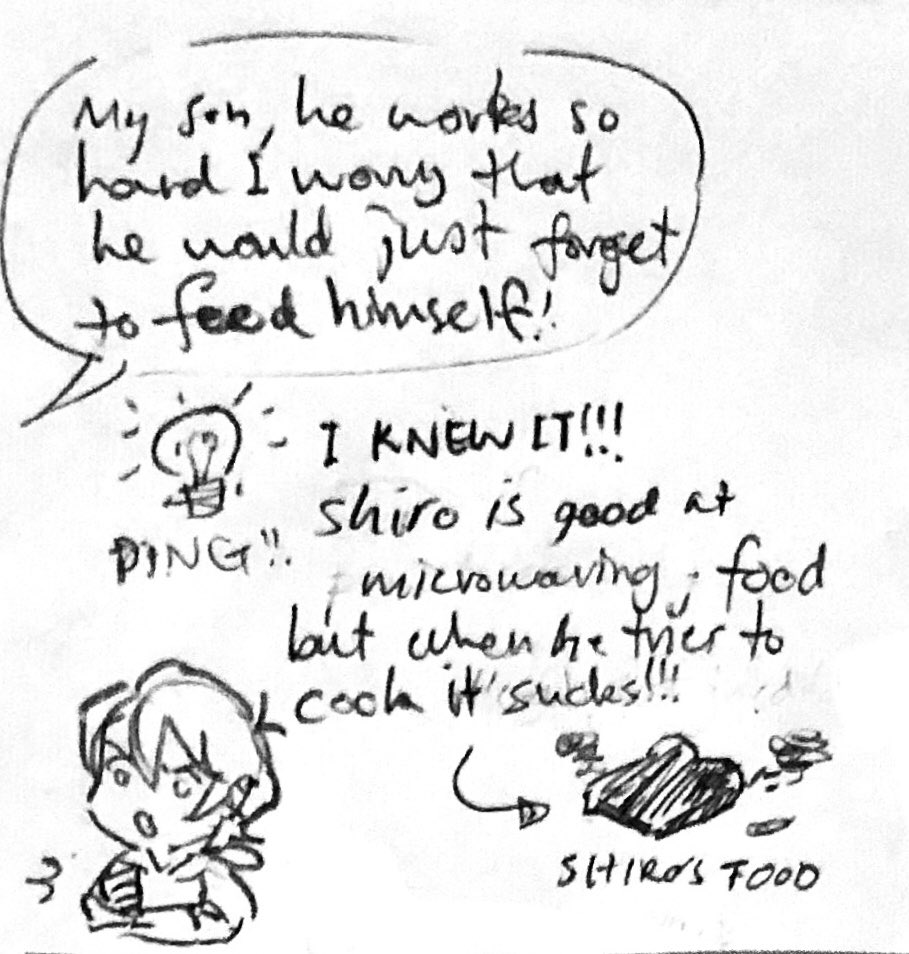 My son, he works so
hard I worry that
he would just forget
to feed himself!
PING!!
I KNEW IT!!!
shiro is good at
microwaving food
but when he tries to
cook it sucks!!!
SHIRO'S FOOD